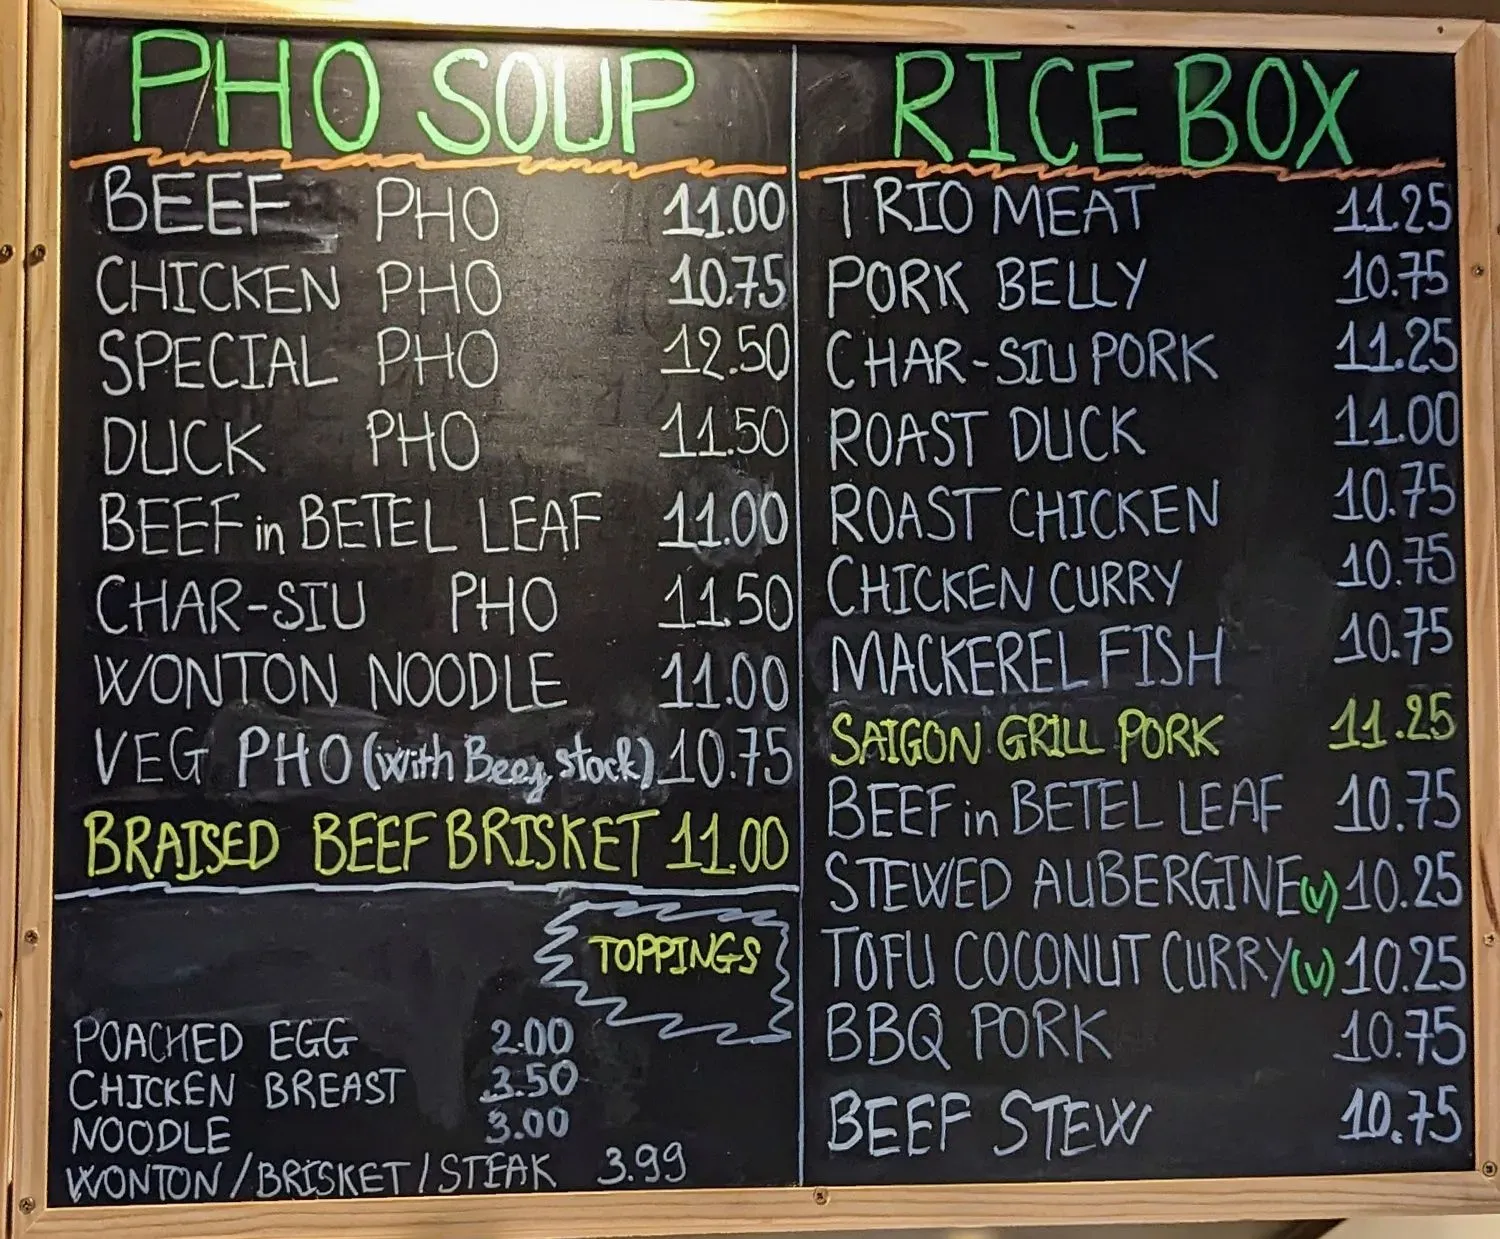 PHO SOUP
BEEF PHO 11.00
CHICKEN PHO 10.75
SPECIAL PHO 12.50
DUCK PHO 11.50
BEEF in BETEL LEAF 11.00
CHAR-SIU PHO 11.50
WONTON NOODLE 11.00
VEG PHO (with Beef stock) 10.75
BRAISED BEEF BRISKET 11.00
TOPPINGS
POACHED EGG 2.00
CHICKEN BREAST 3.50
NOODLE 3.00
WONTON/BRISKET/STEAK 3.99
RICE BOX
TRIO MEAT 11.25
PORK BELLY 10.75
CHAR-SIU PORK 11.25
ROAST DUCK 11.00
ROAST CHICKEN 10.75
CHICKEN CURRY 10.75
MACKEREL FISH 10.75
SAIGON GRILL PORK 11.25
BEEF in BETEL LEAF 10.75
STEWED AUBERGINE (v) 10.25
TOFU COCONUT CURRY (v) 10.25
BBQ PORK 10.75
BEEF STEW 10.75